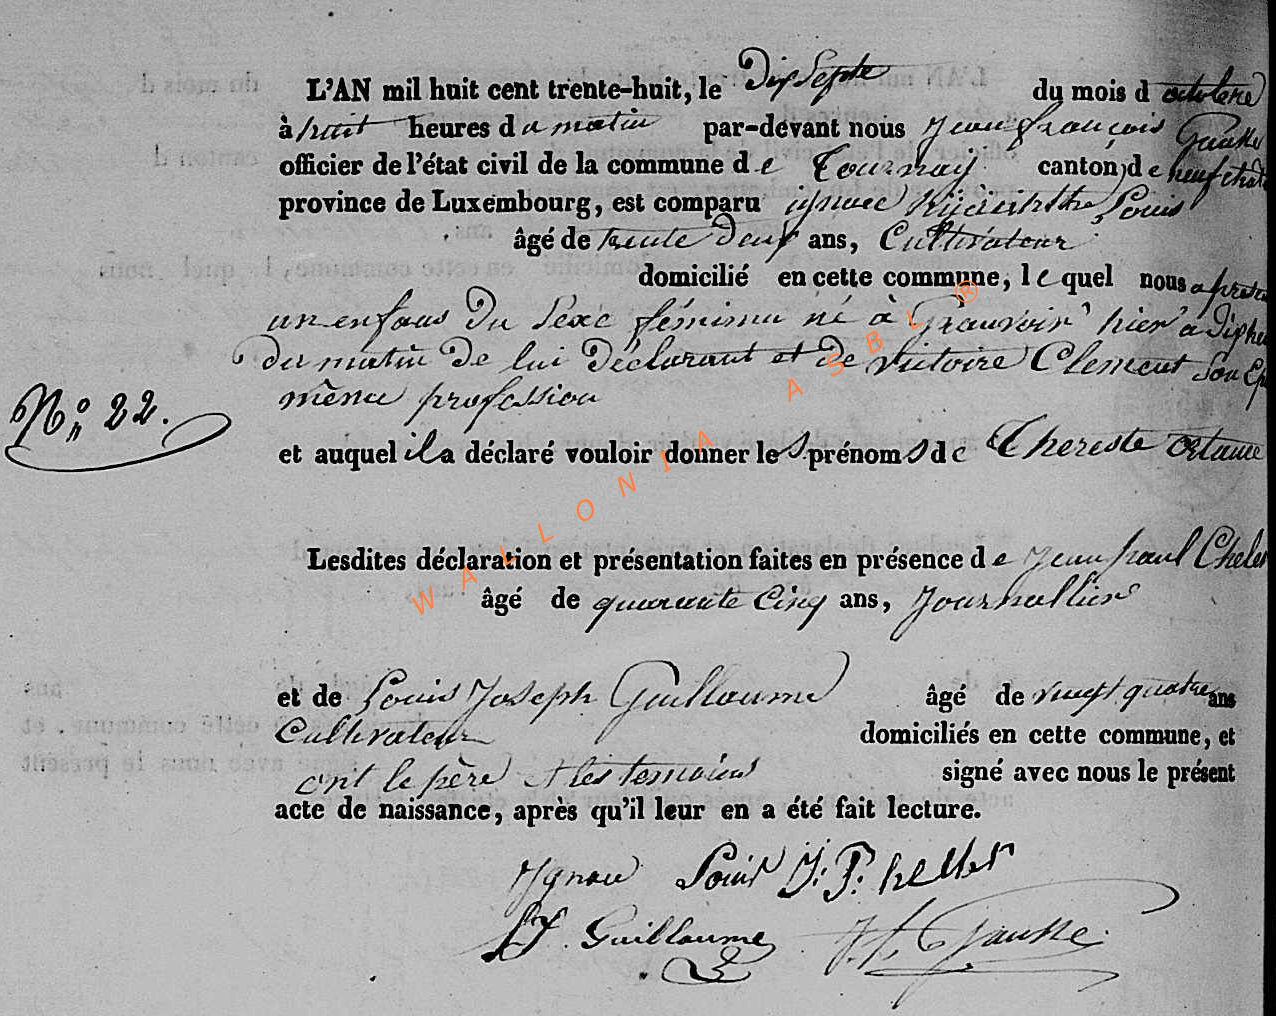 L'AN mil huit cent trente-huit, le Dix Septe du mois d octobre
à huit heures d u matin par-devant nous Jean françois Gauke
officier de l'état civil de la commune d e Tournay canton d e neufchat
province de Luxembourg, est comparu ignace hyacinthe Louis
âgé de trente Deux ans, Cultivateur
domicilié en cette commune, l e quel nous a présen
un enfans Du Sexe féminin né à Grauvoir hier a Dix heu
Du matin De lui Déclarant et De Victoire Clement Son Ep
N° 22.
même profession
et auquel il a déclaré vouloir donner le s prénom s d e Thereste octavie
Lesdites déclaration et présentation faites en présence d e Jean paul
âgé de quarante Cinq ans, Journallier
et de Louis Joseph Guillaume âgé de vingt quatre ans
Cultivateur domiciliés en cette commune, et
ont le père et les temoins signé avec nous le présent
acte de naissance, après qu'il leur en a été fait lecture.
Ignace Louis J: P:
L J. Guillaume J. f. Gauke
WALLONIA ASBL ®